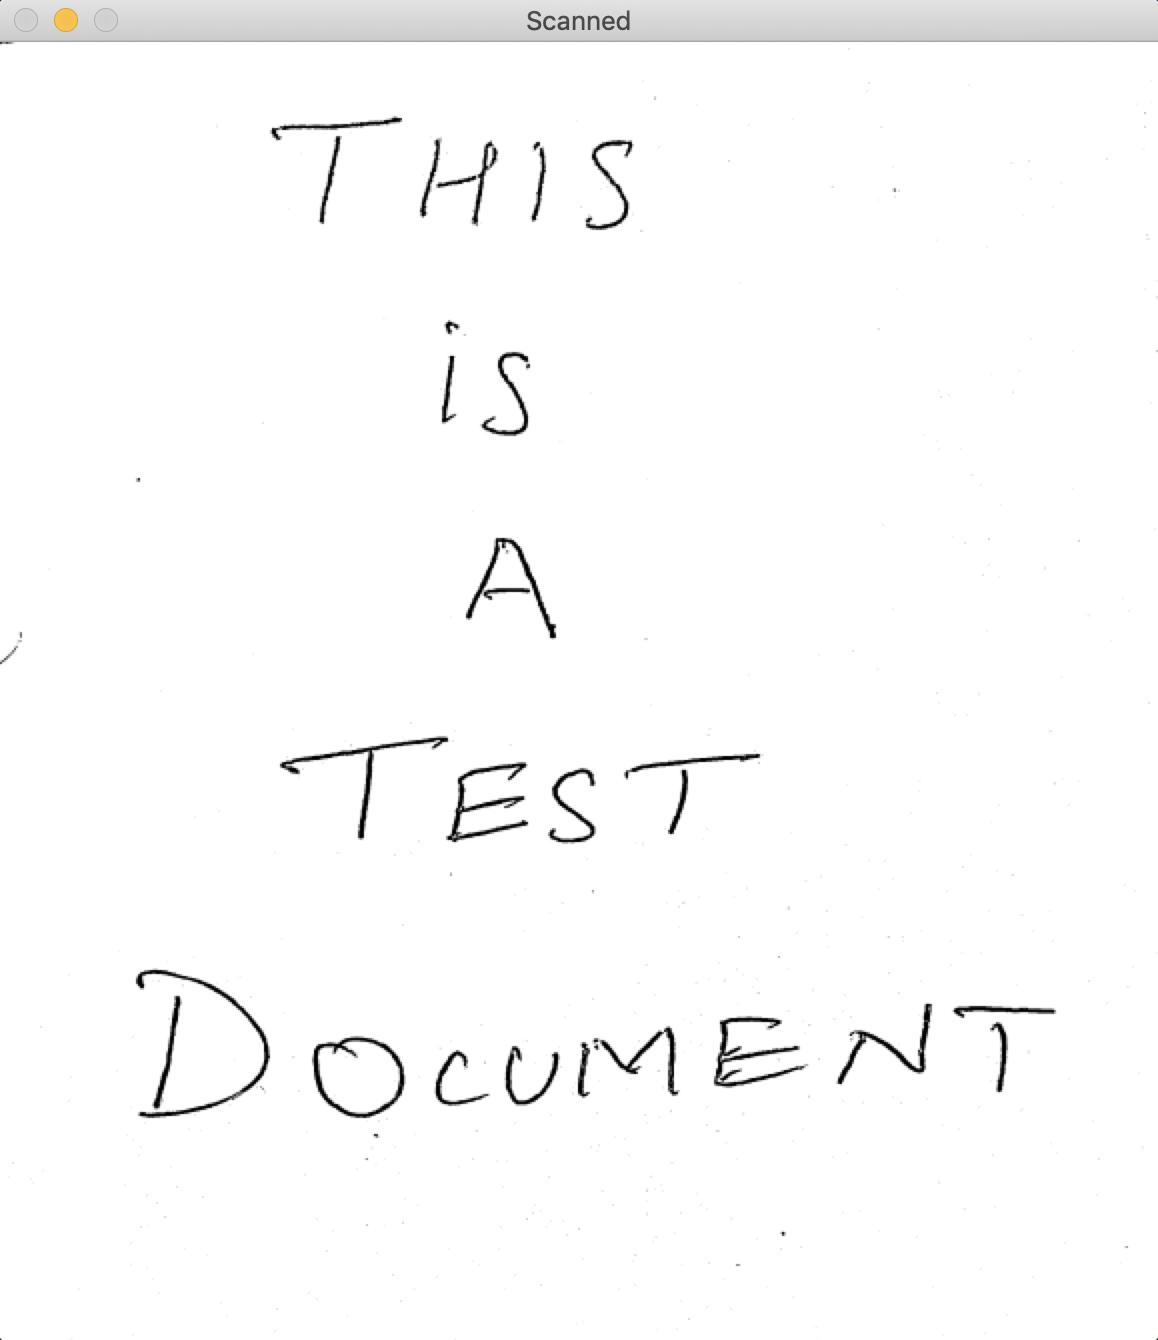 Scanned
THIS
iS
A
TEST
DOCUMENT